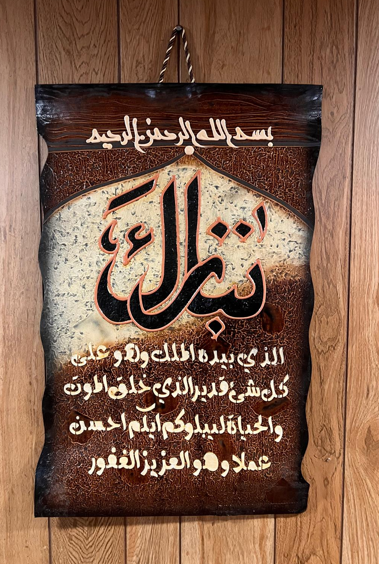 بسم الله الرحمن الرحيم
تبارك
الذي بيده الملك وهو على
كل شئ قدير الذي خلق الموت
والحياة ليبلوكم ايكم احسن
عملا وهو العزيز الغفور